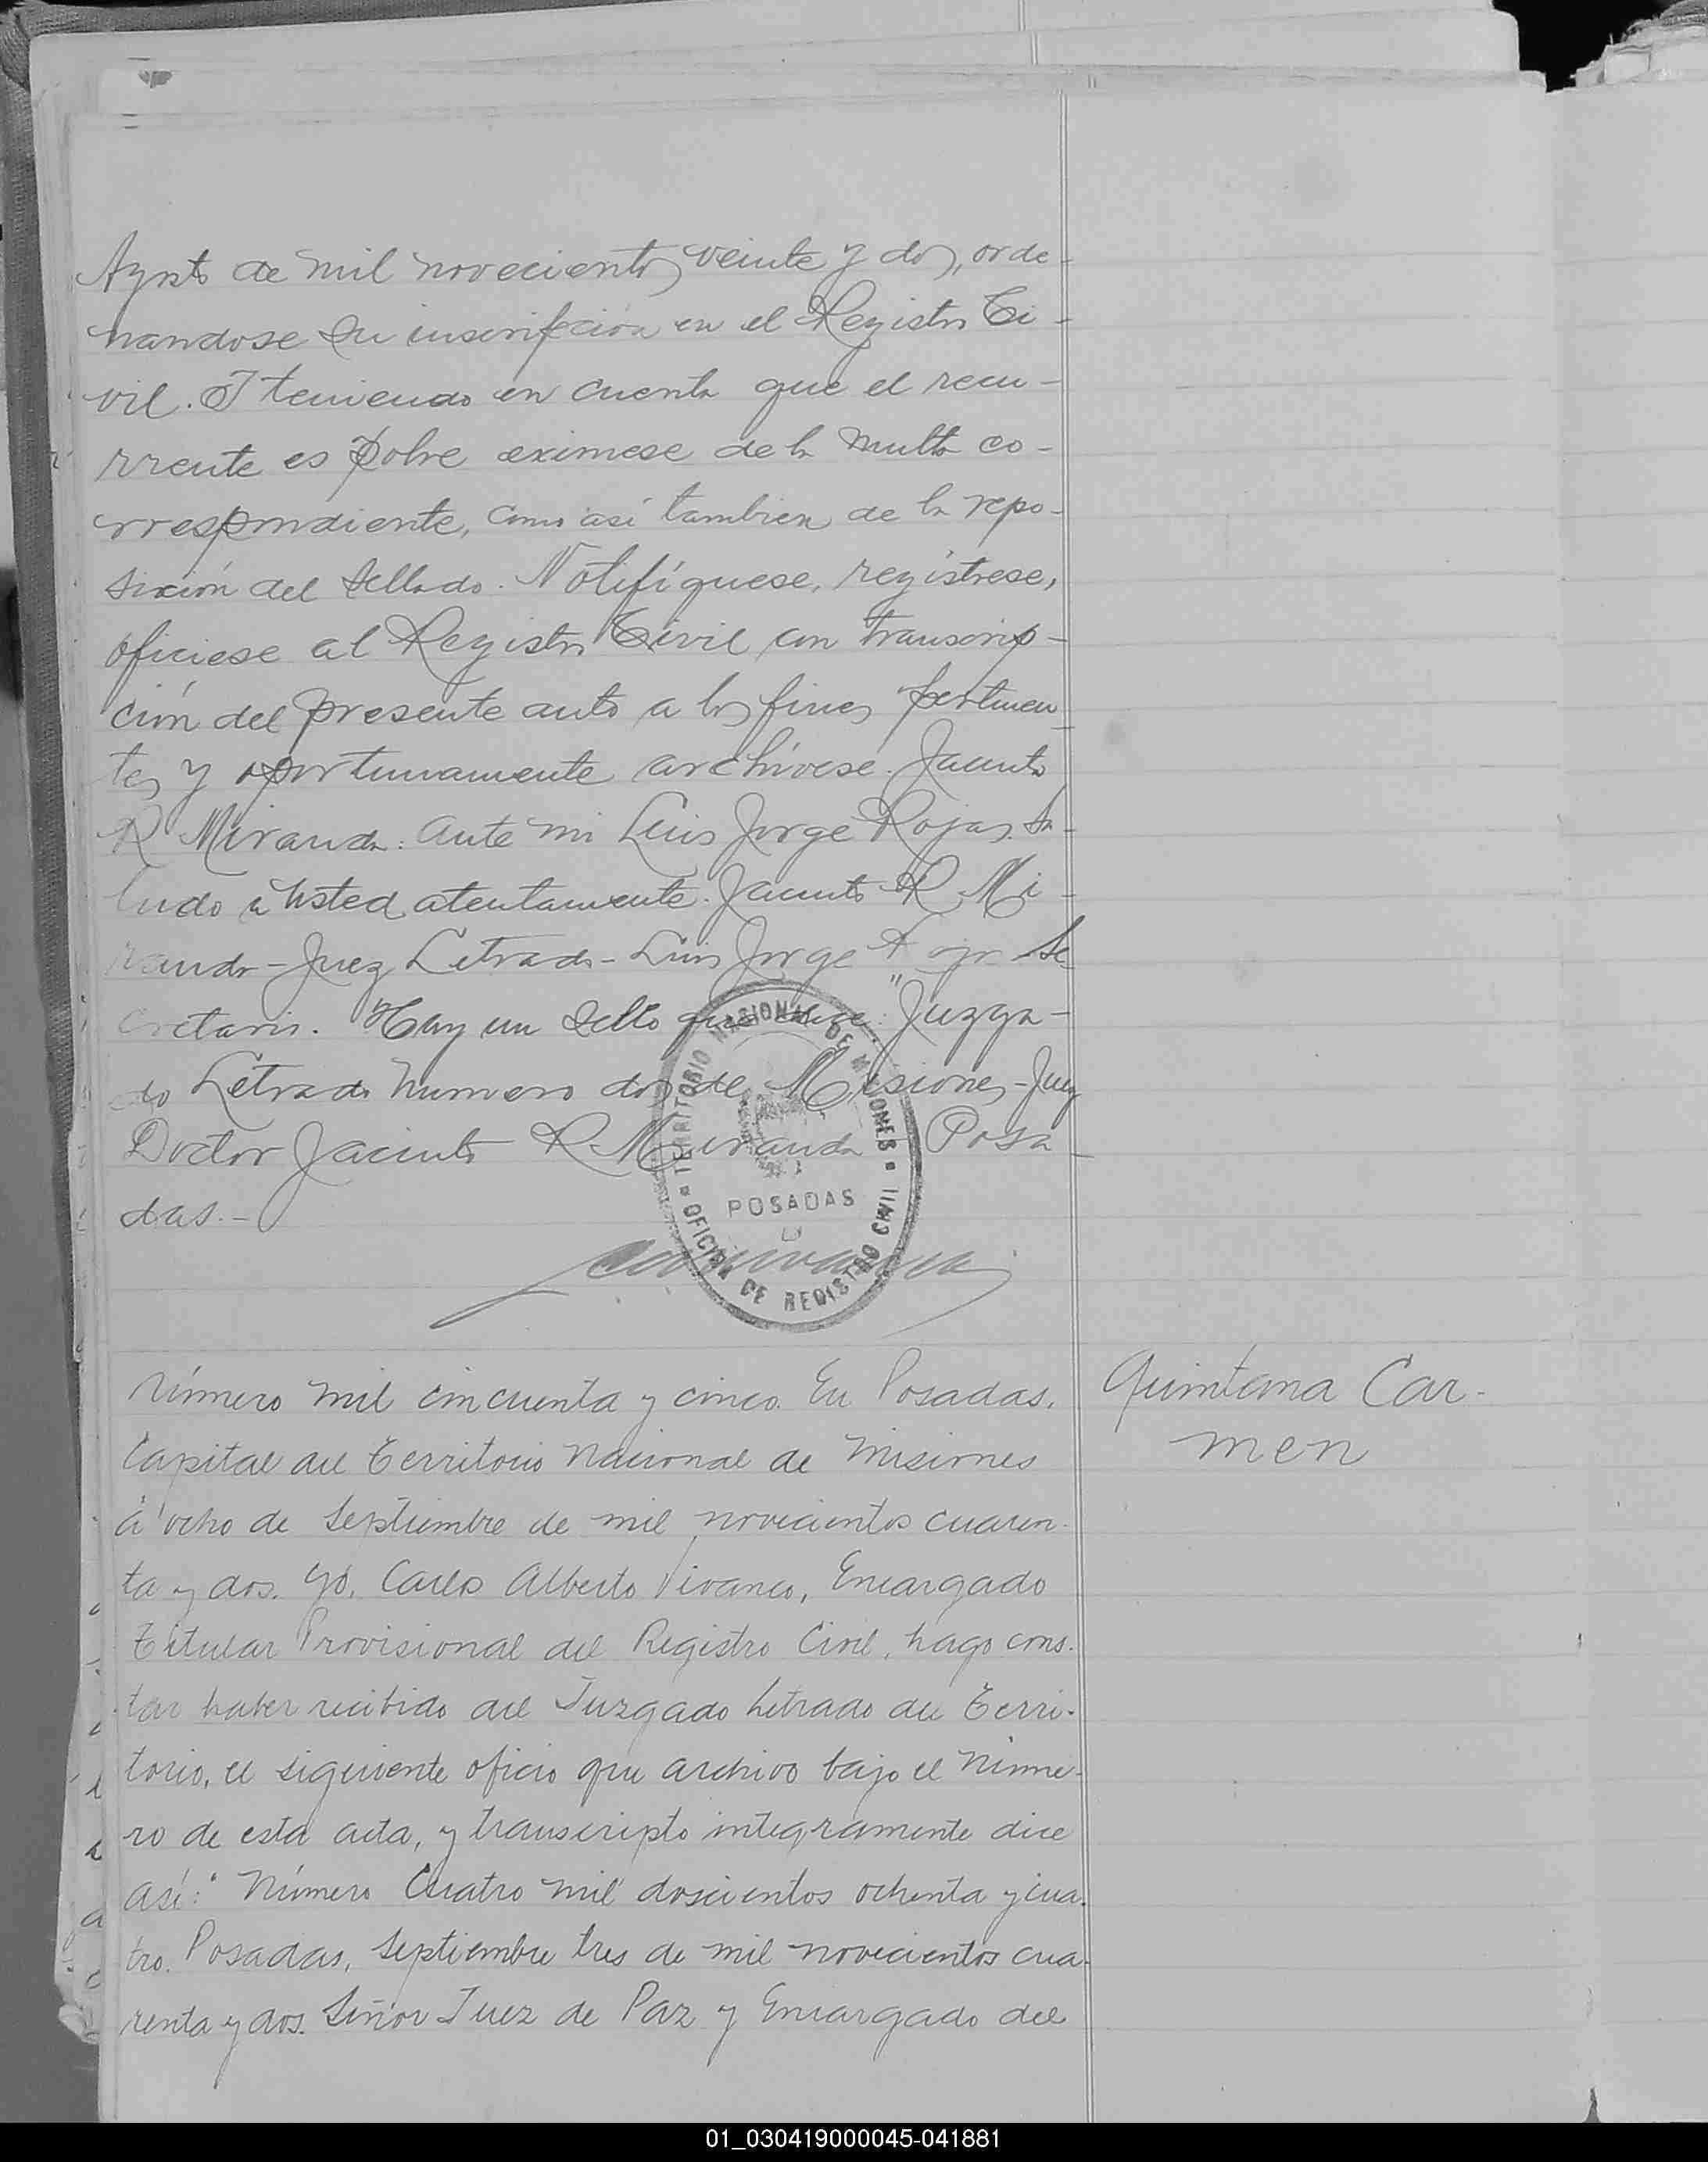 Agosto de mil novecientos veinte y dos, orde-
nandose su inscripción en el Registro Ci-
vil. I teniendo en cuenta que el recu-
rrente es pobre eximese de la multa co-
rrespondiente, como así tambien de la repo-
sición del sellado. Notifíquese, regístrese,
ofíciese al Registro Civil con transcrip-
ción del presente auto a los fines pertinen-
tes y oportunamente archívese. Jacinto
R Miranda: ante mi Luis Jorge Rojas. Sa-
ludo a Usted atentamente. Jacinto R. Mi-
randa - Juez Letrado - Luis Jorge Rojas Se-
cretario. Hay un sello que dice: "Juzga-
do Letrado Numero dos de Misiones - Juez
Doctor Jacinto R. Miranda - Posa-
das.-
TERRITORIO NACIONAL DE MISIONES
POSADAS
OFICINA DE REGISTRO CIVIL
Número mil cincuenta y cinco. En Posadas,
Capital del Territorio Nacional de Misiones
á ocho de Septiembre de mil novecientos cuaren-
ta y dos. Yó, Carlos Alberto Vivanco, Encargado
Titular Provisional del Registro Civil, hago cons-
tar haber recibido del Juzgado Letrado del Terri-
torio, el siguiente oficio que archivo bajo el Núme-
ro de esta acta, y transcripto integramente dice
así: "Número Cuatro mil doscientos ochenta y cua-
tro. Posadas, Septiembre tres de mil novecientos cua-
renta y dos. Señor Juez de Paz y Encargado del
Quintana Car-
men
01_030419000045-041881